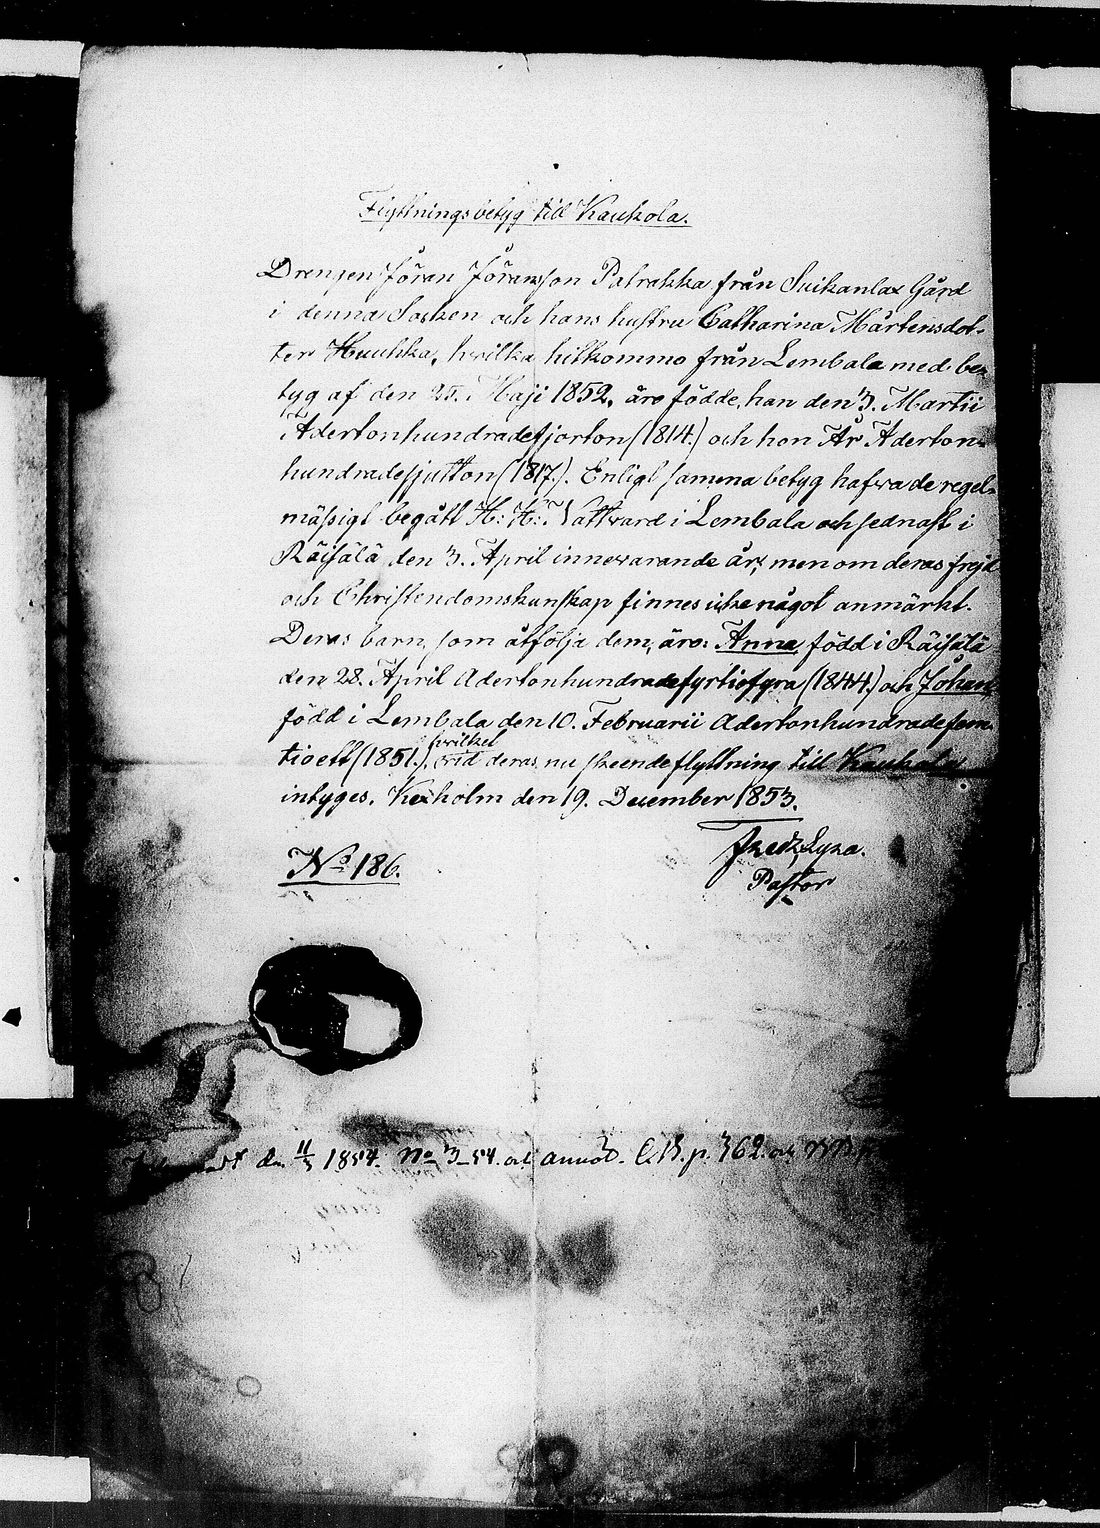 Flyttningsbetyg till Kaukola.
Drengen Jöran Jöransson Patrakka från Suikanlax Gård
i denna Socken och hans hustru Catharina Mårtensdot-
ter Huuhka, hvilka hitkommo från Lembala med be-
tyg af den 25. Maji 1852, äro födde, han den 3. Martii
Adertonhundradefjorton (1814.) och hon År Aderton-
hundradesjutton (1817.). Enligt samma betyg hafva de regel-
mässigt begått H: H: Nattvard i Lembala och sednast i
Räisälä den 3. April innevarande år, men om deras frejd
och Christendomskunskap finnes icke något anmärkt.
Deras barn, som åtfölja dem, äro: Anna född i Räisälä
den 28. April Adertonhundradefyrtiofyra (1844.) och Johan
född i Lembala den 10. Februarii Adertonhundradefem-
tioett (1851.), hvilket vid deras nu skeende flyttning till Kaukola
intyges. Kexholm den 19. December 1853.
Fredr. Lyra.
Pastor
No 186.
den 11/3 1854. No 3–54. och annot. C.B. p. 362. och